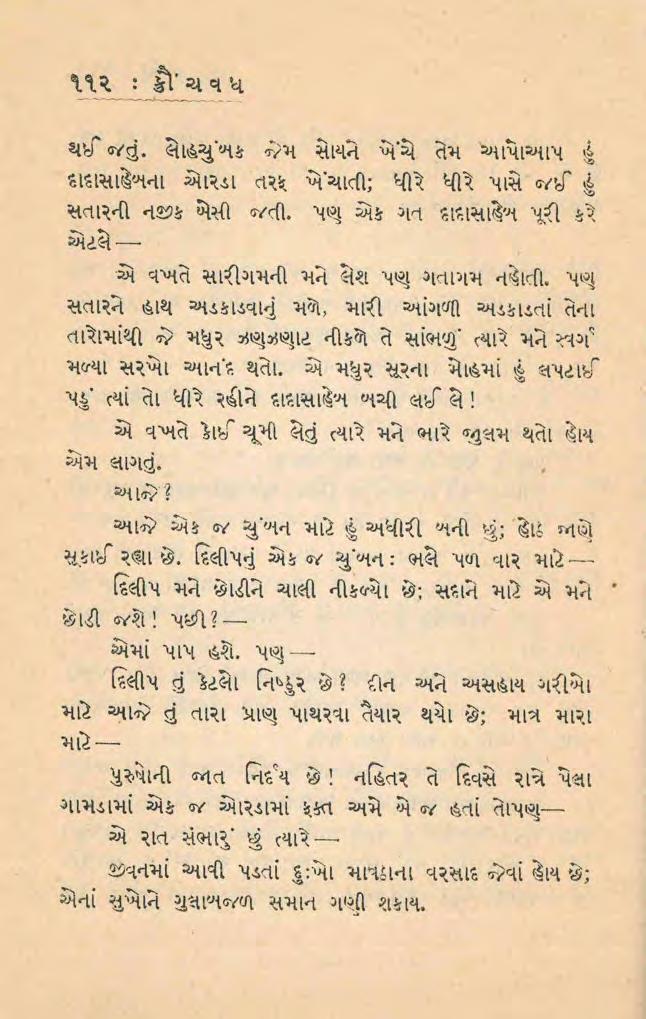 ૧૧૨ : ક્રૌંચવધ
થઈ જતું. લોહચુંબક જેમ સોયને ખેંચે તેમ આપોઆપ હું
દાદાસાહેબના ઓરડા તરફ ખેંચાતી; ધીરે ધીરે પાસે જઈ હું
સતારની નજીક બેસી જતી. પણ એક ગત દાદાસાહેબ પૂરી કરે
એટલે—
એ વખતે સારીગમની મને લેશ પણ ગતાગમ નહોતી. પણ
સતારને હાથ અડકાડવાનું મળે, મારી આંગળી અડકાડતાં તેના
તારોમાંથી જે મધુર ઝણઝણાટ નીકળે તે સાંભળું ત્યારે મને સ્વર્ગ
મળ્યા સરખો આનંદ થતો. એ મધુર સૂરના મોહમાં હું લપટાઈ
પડું ત્યાં તો ધીરે રહીને દાદાસાહેબ બચી લઈ લે!
એ વખતે કોઈ ચૂમી લેતું ત્યારે મને ભારે જુલમ થતો હોય
એમ લાગતું.
આજે?
આજે એક જ ચુંબન માટે હું અધીરી બની છું; હોઠ જાણે
સૂકાઈ રહ્યા છે. દિલીપનું એક જ ચુંબન: ભલે પળ વાર માટે—
દિલીપ મને છોડીને ચાલી નીકળ્યો છે; સદાને માટે એ મને
છોડી જશે! પછી?—
એમાં પાપ હશે. પણ—
દિલીપ તું કેટલો નિષ્ઠુર છે? દીન અને અસહાય ગરીબો
માટે આજે તું તારા પ્રાણ પાથરવા તૈયાર થયો છે; માત્ર મારા
માટે—
પુરુષોની જાત નિર્દય છે! નહિતર તે દિવસે રાત્રે પેલા
ગામડામાં એક જ ઓરડામાં ફક્ત અમે બે જ હતાં તોપણ—
એ રાત સંભારું છું ત્યારે—
જીવનમાં આવી પડતાં દુઃખો માવઠાના વરસાદ જેવાં હોય છે;
એનાં સુખોને ગુલાબજળ સમાન ગણી શકાય.